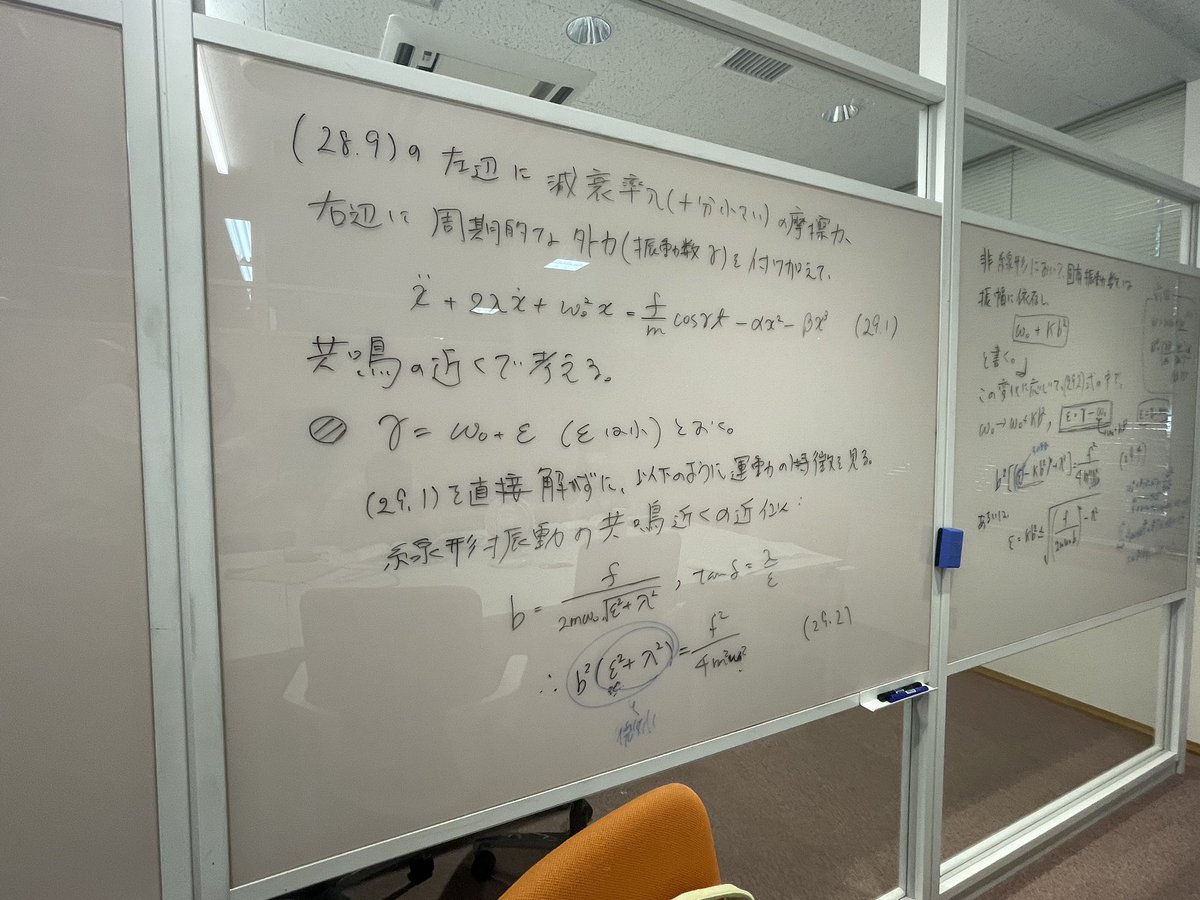 (28.9)の左辺に減衰率λ(十分小さい)の摩擦力、
右辺に周期的な外力(振動数γ)を付け加えて、
ẍ + 2λẋ + ω₀²x = f/m cosγt − αx² − βx³ (29.1)
共鳴の近くで考える。
γ = ω₀ + ε (εは小)とおく。
(29.1)を直接解かずに、以下のように運動の特徴を見る。
線形振動の共鳴近くの近似:
b = f/(2mω₀√(ε²+λ²)), tanδ = λ/ε
∴ b²(ε²+λ²) = f²/(4m²ω₀²) (29.2)
非線形において、固有振動数は
振幅に依存し、
ω₀ + κb²
と書く。
この変化に応じて、(29.2)式の中で、
ω₀→ω₀+κb², ε=γ−ω₀
b²[(ε−κb²)²+λ²] = f²/(4m²ω₀²)
あるいは
ε = κb² ± √((f/(2mω₀b))² − λ²)